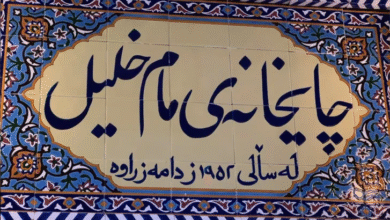 چایخانەی مام خلیل
لە ساڵی ١٩٥٢ ز دامەزراوە